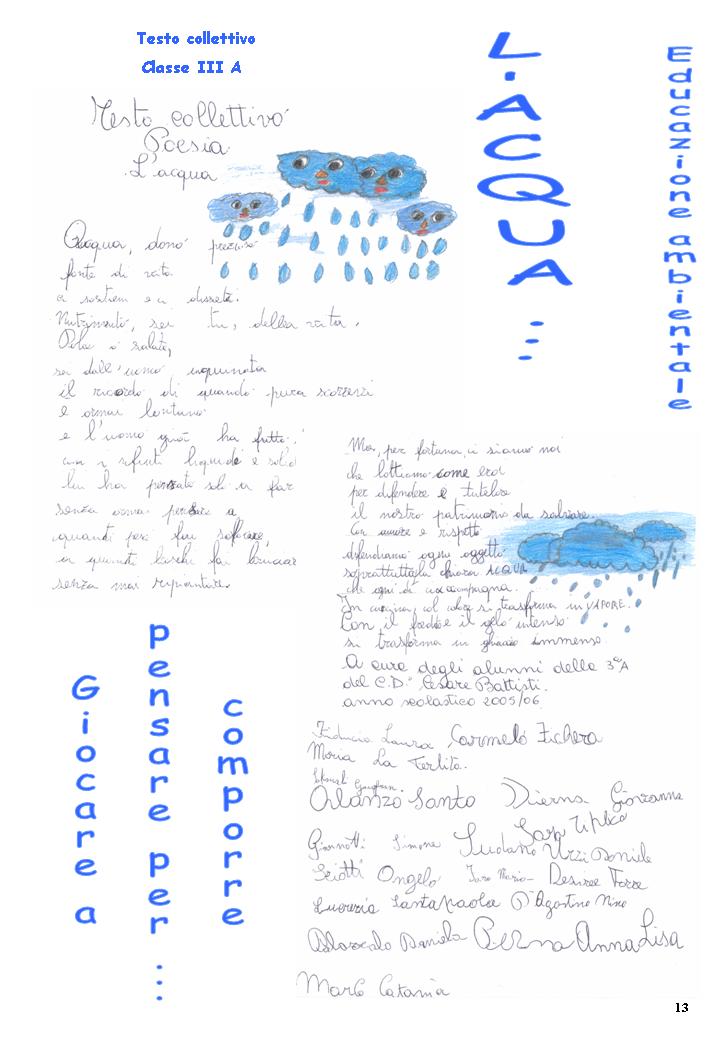 Testo collettivo
Classe III A
L'ACQUA ...
Educazione ambientale
Testo collettivo
Poesia
L'acqua
Acqua, dono prezioso
fonte di vita
ci sostieni e ci disseti.
Nutrimento, sei tu, della vita.
Dolce o salata,
sei dall'uomo inquinata
il ricordo di quando pura scorrevi
è ormai lontano
e l'uomo già ha fritto,
con i rifiuti liquidi e solidi
lui ha pensato solo a far
senza ormai pensare a
quanti pesci fai soffocare,
a quanti boschi fai bruciar
senza mai ripiantare.
Ma, per fortuna, ci siamo noi
che lottiamo come eroi
per difendere e tutelare
il nostro patrimonio da salvare.
Con amore e rispetto
difendiamo ogni oggetto
soprattutto la chiara ACQUA
che ogni dì ci accompagna.
In cucina, col calore si trasforma in VAPORE.
Con il freddo e il gelo intenso
si trasforma in ghiaccio immenso
A cura degli alunni della 3ªA
del C.D. Cesare Battisti.
anno scolastico 2005/06
Fiducia Laura Carmelo Fichera
Maria La Ferlito
Orlanzo Santo Dierna Giovanna
Giannotti Simone Ludano Uzzi Daniele
Sciotti Angelo Desiree Torre
Lucrezia Santapaola D'Agostino Nino
Daniela Perna Anna Lisa
Marco Catania
Giocare a
pensare per ...
comporre
13